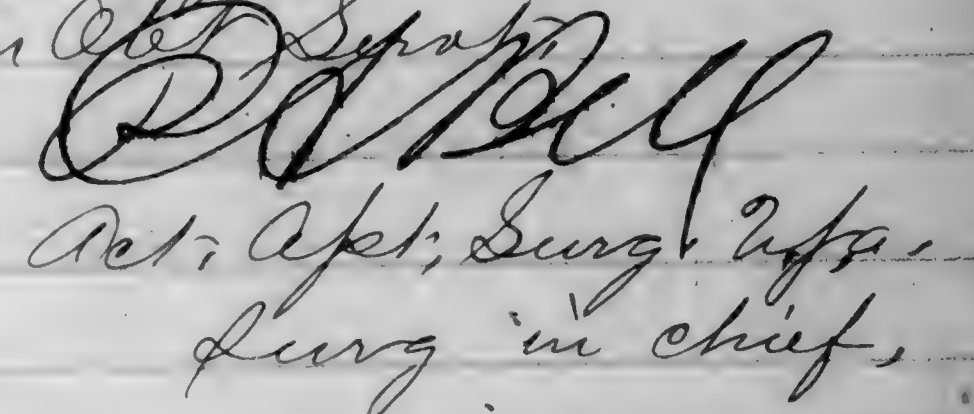 Obt Syrup.
B A Bell
Act. Asst. Surg. USA.
Surg in chief.